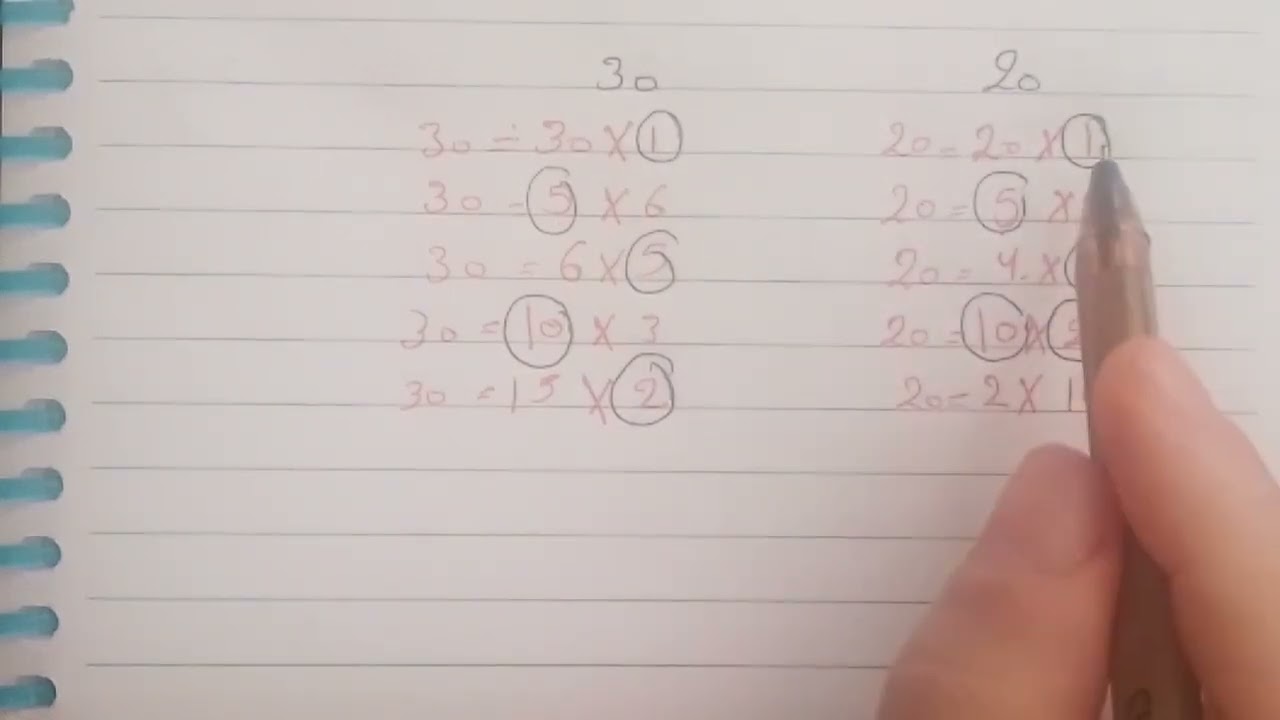 30 20
30 = 30 X 1 20 = 20 X 1
30 = 5 X 6 20 = 5 X
30 = 6 X 5 20 = 4 X
30 = 10 X 3 20 = 10 X 2
30 = 15 X 2 20 = 2 X 1